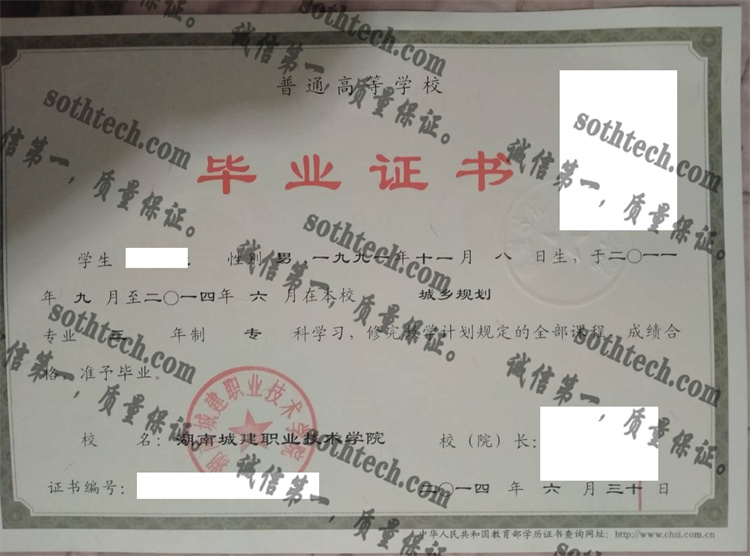 普通高等学校
毕业证书
学生 性别 男,一九九一年十一月 八 日生,于二〇一一
年 九 月至二〇一四年 六 月在本校 城乡规划
专业 三 年制 专 科学习,修完教学计划规定的全部课程,成绩合
格,准予毕业。
校 名:湖南城建职业技术学院
校(院)长:
证书编号:
二〇一四 年 六 月 三十 日
中华人民共和国教育部学历证书查询网址:http://www.chsi.com.cn
湖南城建职业技术学院
sothtech.com
诚信第一,质量保证。
sothtech.com
诚信第一,质量保证。
sothtech.com
诚信第一,质量保证。
sothtech.com
诚信第一,质量保证。
sothtech.com
诚信第一,质量保证。
sothtech.com
诚信第一,质量保证。
sothtech.com
诚信第一,质量保证。